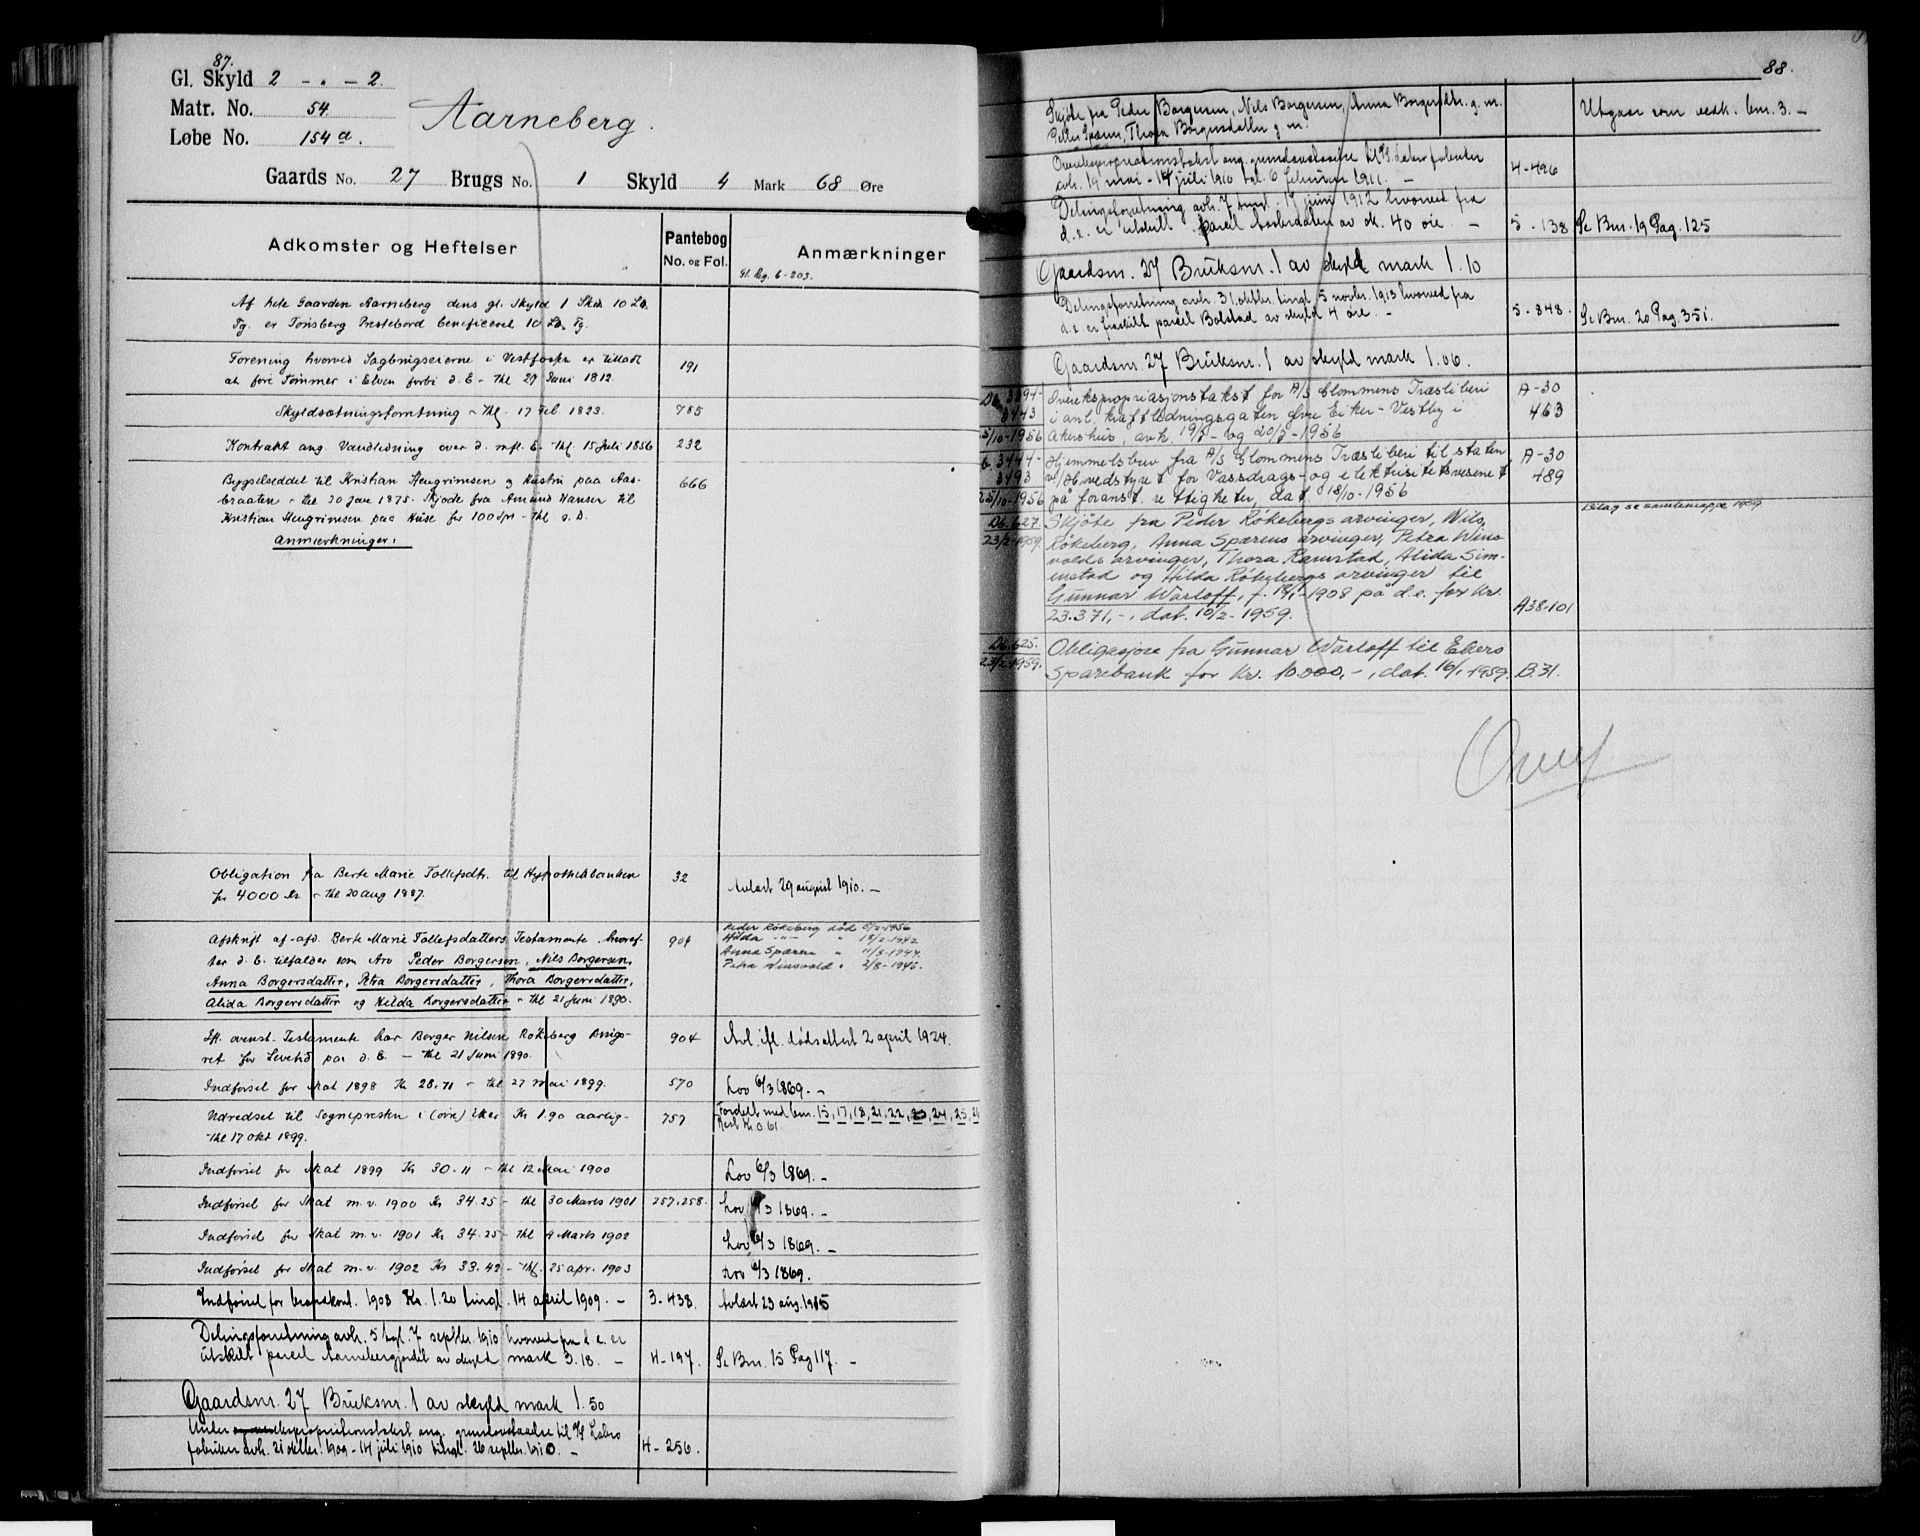 87.
Gl. Skyld 2 - . - 2.
Matr. No. 54
Løbe No. 154 a.
Aarneberg.
Gaards No. 27 Brugs No. 1 Skyld 4 Mark 68 Øre
Adkomster og Heftelser
Pantebog No. og Fol.
Anmærkninger
Gl. Reg. 6-203.
Af hele Gaarden Aarneberg dens gl. Skyld 1 Skd. 10 Lb.
Tg. er Tønsberg Prestebord beneficeret 10 Lb. Tg.
Forening hvorved Sagbrugseierne i Vestfossen er tilladt
at føre Tømmer i Elven forbi d. E - thl 29 Juni 1812. 191
Skyldsætningsforretning - thl. 17 Feb. 1823. 785
Kontrakt ang. Vandledning over d. mfl. E. - Thl 15 Juli 1856 232
Bygselseddel til Kristian Hengrimsen og Hustru paa Aas-
braaten - thl 30 Jan 1875. Skjøde fra Amund Hansen til 666
Kristian Hengrimsen paa Huse for 100 Spr - thl s. D.
Anmærkninger:
Obligation fra Berte Marie Tollefsdtr. til Hypothekbanken 32
for 4000 Kr - thl 20 aug 1887. Avlæst 29 august 1910. -
Peder Røkeberg død 5/2-1956
Hilda -"- " 18/2-1942
Anna Spæren " 11/3-1944.
Petra Winsvold " 2/8-1945.
Afskrift af afd. Berte Marie Tollefsdatters Testamente hvoref- 904
ter d. E. tilfalder som Arv Peder Borgersen, Nils Borgersen,
Anna Borgersdatter, Petra Borgersdatter, Thora Borgersdatter,
Alida Borgersdatter og Hilda Borgersdatter - thl 21 Juni 1890.
Ift. ovenst. Testamente har Borger Nilsen Røkeberg Brugs- 904 Avl. ifl. dødsattest 2 april 1924.
ret for Levetid paa d. E. - thl 21 Juni 1890.
Indførsel for Skat 1898 Kr 28.71 - thl 27 Mai 1899. 570 Lov 6/3 1869. -
Udredsel til Sognepresten i (øvre) Eker Kr 1.90 aarlig - 757 Fordelt med bnr. 15, 17, 18, 21, 22, 23, 24, 25, 26
thl 17 okt 1899. Rest Kr 0.61.
Indførsel for Skat 1899 Kr 30.11 - thl 12 Mai 1900 Lov 6/3 1869. -
Indførsel for Skat m.v. 1900 Kr 34.25 - thl 30 Marts 1901 257.258. Lov 6/3 1869. -
Indførsel for Skat m.v. 1901 Kr 34.25 - thl 4 Marts 1902 Lov 6/3 1869. -
Indførsel for Skat m.v. 1902 Kr 33.42 - Thl. 25 apr. 1903 Lov 6/3 1869.
Indførsel for brandkont. 1908 Kr. 1.20 tingl. 14 april 1909. - 3.438. Avlæst 23 aug. 1915
Delingsforretning avh. 5 tgl. 7 septbr. 1910 hvorved fra d. e. er
utskilt parcel Aarnebergjordet av skyld mark 3.18. - 4-197. Se Bnr. 15 Pag 117. -
Gaardsnr. 27 Bruksnr. 1 av skyld mark 1.50
Under ekspropriationstakst ang. grundavstaaelse til A/S Labro
fabriker avh. 21 oktbr. 1909 - 14 juli 1910 tingl. 26 septbr. 1910. - 4-256.
88.
Skjøte fra Peder Borgersen, Nils Borgersen, Anna Borgersdtr. g. m. Utgaar som vedk. bnr. 3. -
Peder Spæren, Thora Borgersdatter g. m.
Overekspropriationstakst ang. grundavstaaelse til A/S Labro fabriker 4-496
avh. 19 mai - 14 juli 1910 tgl. 6 februar 1911. -
Delingsforretning avh. 7 tingl. 14 juni 1912 hvorved fra
d. e. er utskilt parcel Aasbraaten av sk. 40 øre. - 5-138 Se Bnr. 19 Pag. 125
Gaardsnr. 27 Bruksnr. 1 av skyld mark 1.10
Delingsforretning avh. 31 oktbr. tingl. 5 novbr. 1913 hvorved fra
d. e. er fraskilt parcel Bolstad av skyld 4 øre. - 5-848. Se Bnr. 20 Pag. 351.
Gaardsnr. 27 Bruksnr. 1 av skyld mark 1.06.
Db. 3394- Overekspropriasjonstakst for A/S Glommens Træsliberi A-30
3443 i anl. kraftledningsgaten Øvre Eiker - Vestby i 463
25/10-1956 Akershus, avh. 19/7- og 20/7-1956
Db. 3444- Hjemmelsbrev fra A/S Glommens Træsliberi til staten A-30
3493 v/Hovedstyret for Vassdrags- og elektrisitetsvesenet 489
25/10-1956 på foranst. rettigheter, dat. 18/10-1956
Bilag se samlemappe 1959.
Db. 627. Skjøte fra Peder Røkebergs arvinger, Nils
23/2-1959. Røkeberg, Anna Spærens arvinger, Petra Wins-
volds arvinger, Thora Ramstad, Alida Sim-
enstad og Hilda Røkebergs arvinger til
Gunnar Warloff, f. 18/1-1908 på d.e. for kr.
23.371,-, dat. 10/2-1959. A38-101
Db. 625. Obligasjon fra Gunnar Warloff til Eikers
23/2-1959. Sparebank for kr. 10.000,-, dat. 16/1 1959. B.31.